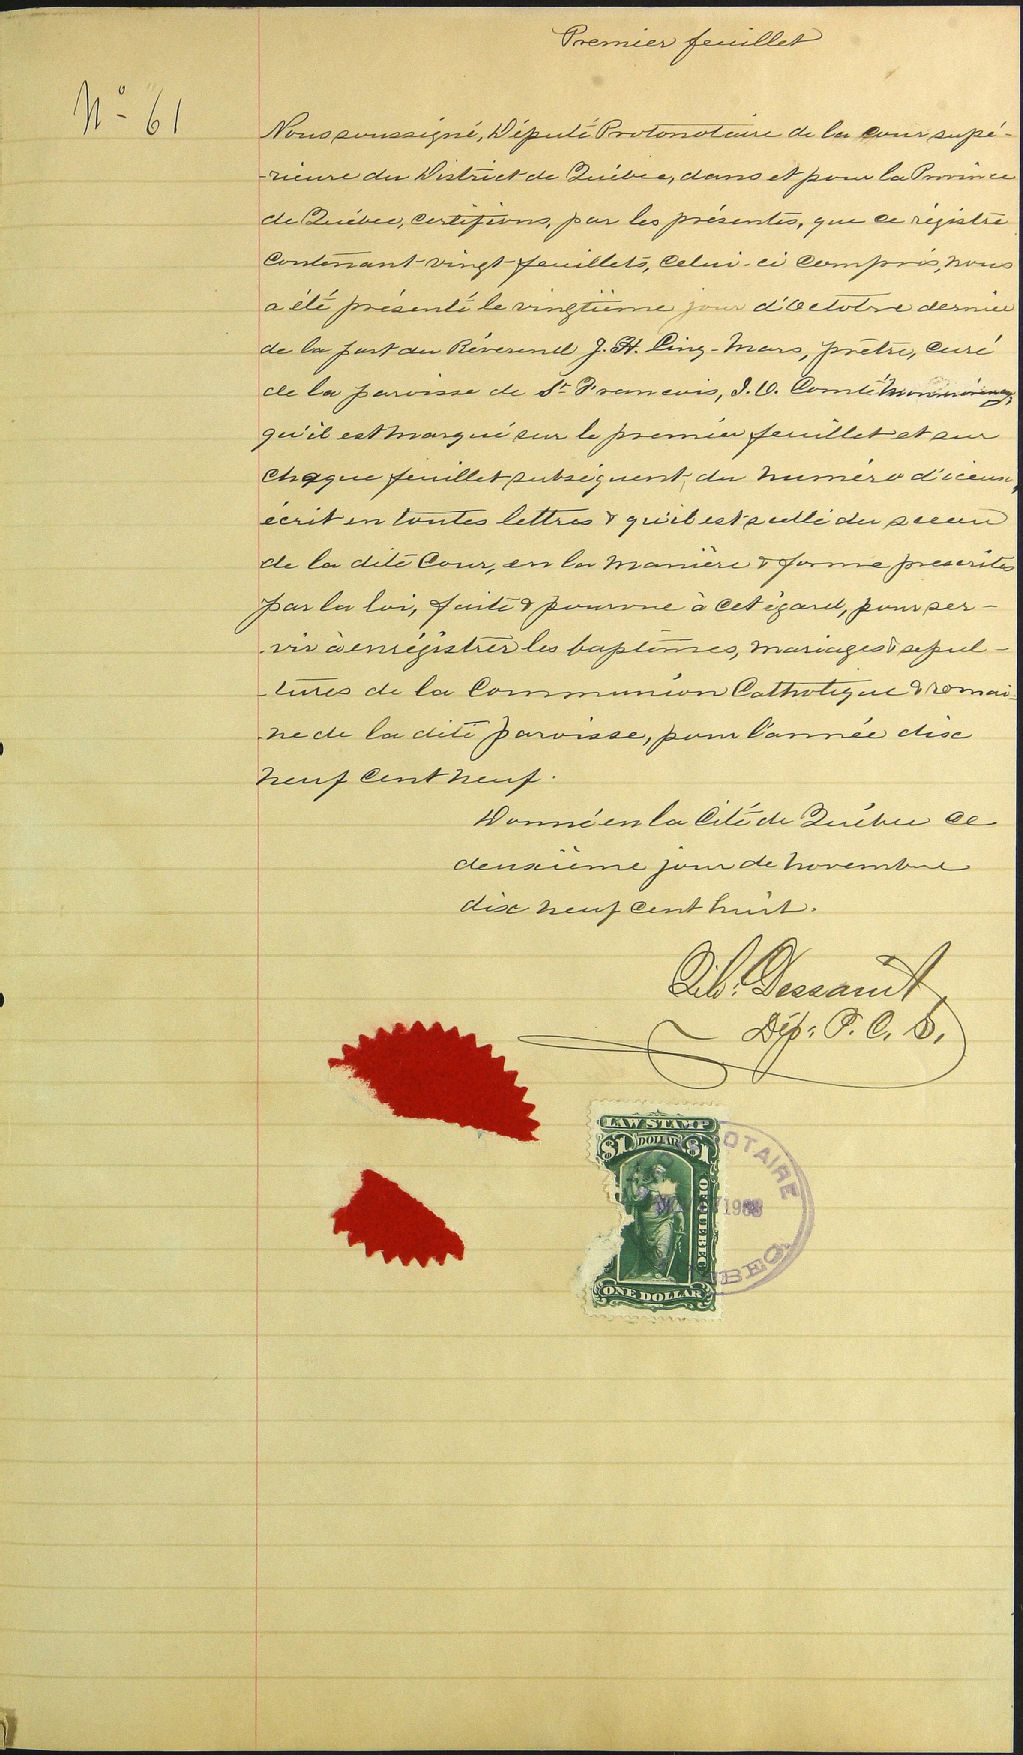 Premier feuillet
No 61
Nous soussigné, Député Protonotaire de la cour supé-
-rieure du District de Québec, dans et pour la Province
de Québec, certifions, par les présentes, que ce régistre
contenant vingt feuillets, celui-ci compris, nous
a été présenté le vingtième jour d'Octobre dernier
de la part du Révérend J. H. Cinq-Mars, prêtre, curé
de la paroisse de St François, I. O. Comté Montmorency,
qu'il est marqué sur le premier feuillet et sur
chaque feuillet subséquent, du numéro d'iceux,
écrit en toutes lettres & qu'il est scellé du sceau
de la dite Cour, en la manière & forme prescrites
par la loi, faite & pourvue à cet égard, pour ser-
-vir à enrégistrer les baptêmes, mariages & sépul-
-tures de la Communion Catholique & romai-
-ne de la dite paroisse, pour l'année dix
neuf cent neuf.
Donné en la Cité de Québec ce
deuxième jour de Novembre
dix neuf cent huit.
Dessault
Dép. P. C. S.
LAW STAMP
$1 DOLLAR $1
OF QUEBEC
ONE DOLLAR
OTAIRE
BEC